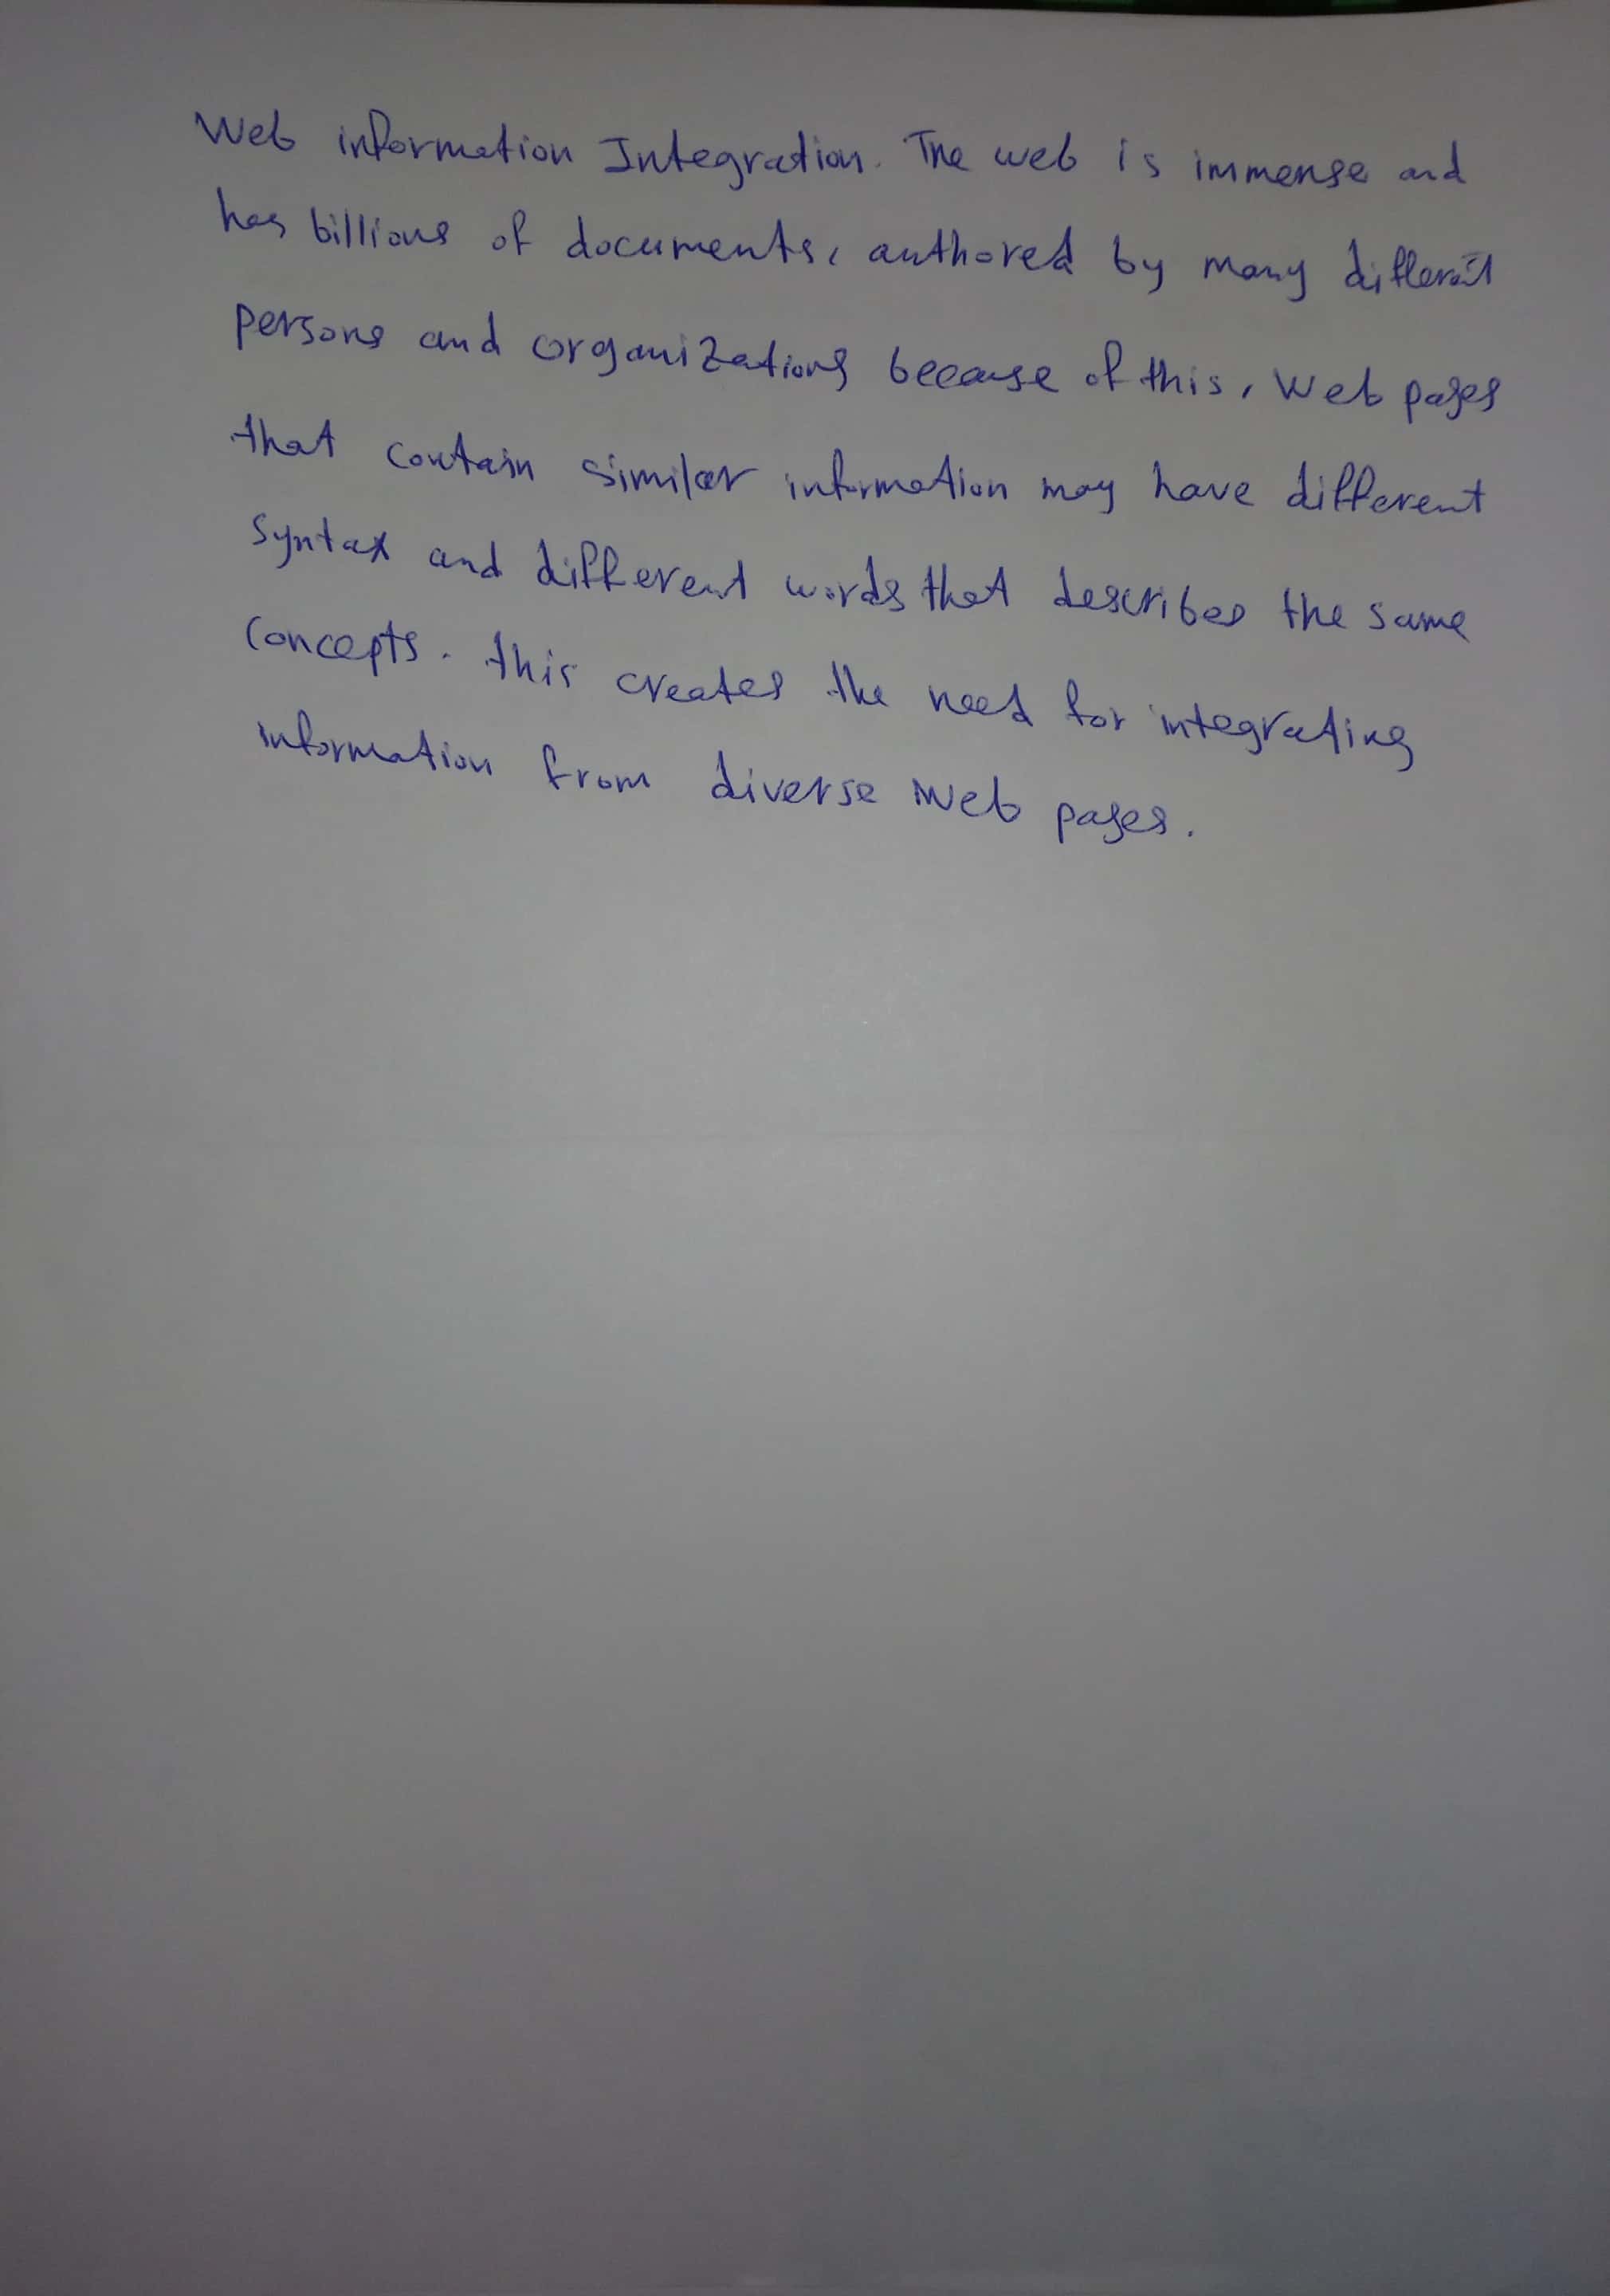 Web information Integration. The web is immense and
has billions of documents, authored by many different
persons and organizations because of this, Web pages
that contain similar information may have different
syntax and different words that describes the same
concepts. this creates the need for integrating
information from diverse Web pages.